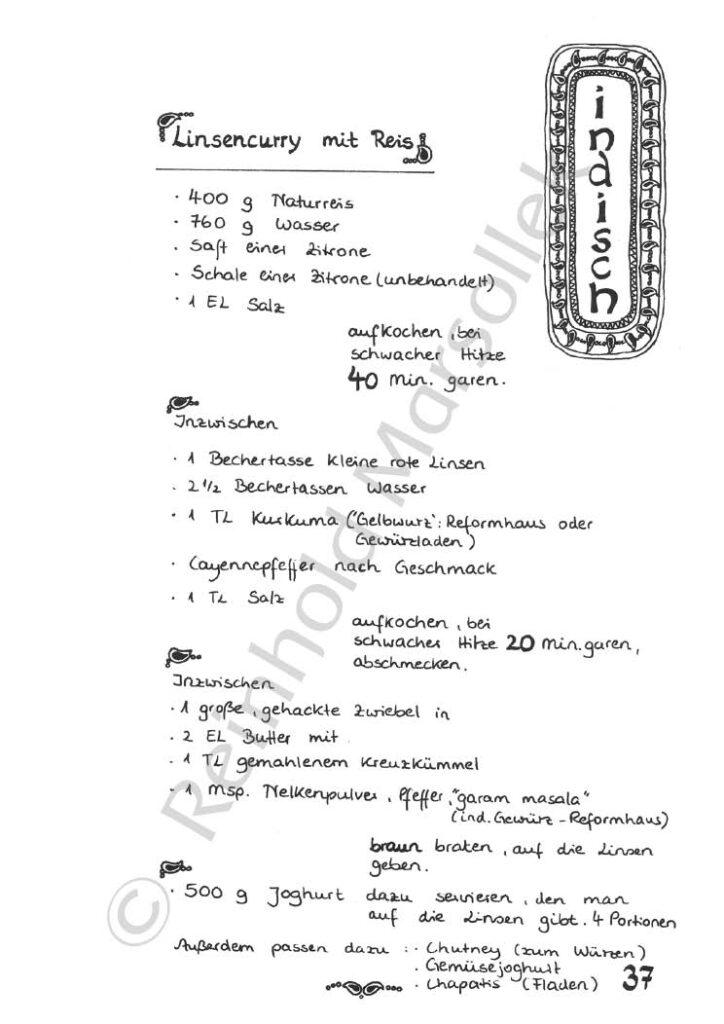 indisch
Linsencurry mit Reis
· 400 g Naturreis
· 760 g Wasser
· Saft einer Zitrone
· Schale einer Zitrone (unbehandelt)
· 1 EL Salz
aufkochen, bei
schwacher Hitze
40 Min. garen.
Inzwischen
· 1 Bechertasse kleine rote Linsen
· 2 1/2 Bechertassen Wasser
· 1 TL Kurkuma ('Gelbwurz': Reformhaus oder
Gewürzladen)
· Cayennepfeffer nach Geschmack
· 1 TL Salz
aufkochen, bei
schwacher Hitze 20 Min. garen,
abschmecken.
Inzwischen
· 1 große, gehackte Zwiebel in
· 2 EL Butter mit
· 1 TL gemahlenem Kreuzkümmel
· 1 Msp. Nelkenpulver, Pfeffer, "garam masala"
(ind. Gewürz - Reformhaus)
braun braten, auf die Linsen
geben.
· 500 g Joghurt dazu servieren, den man
auf die Linsen gibt. 4 Portionen
Außerdem passen dazu : · Chutney (zum Würzen)
· Gemüsejoghurt
· Chapatis (Fladen)
37
© Reinhold Marsollek